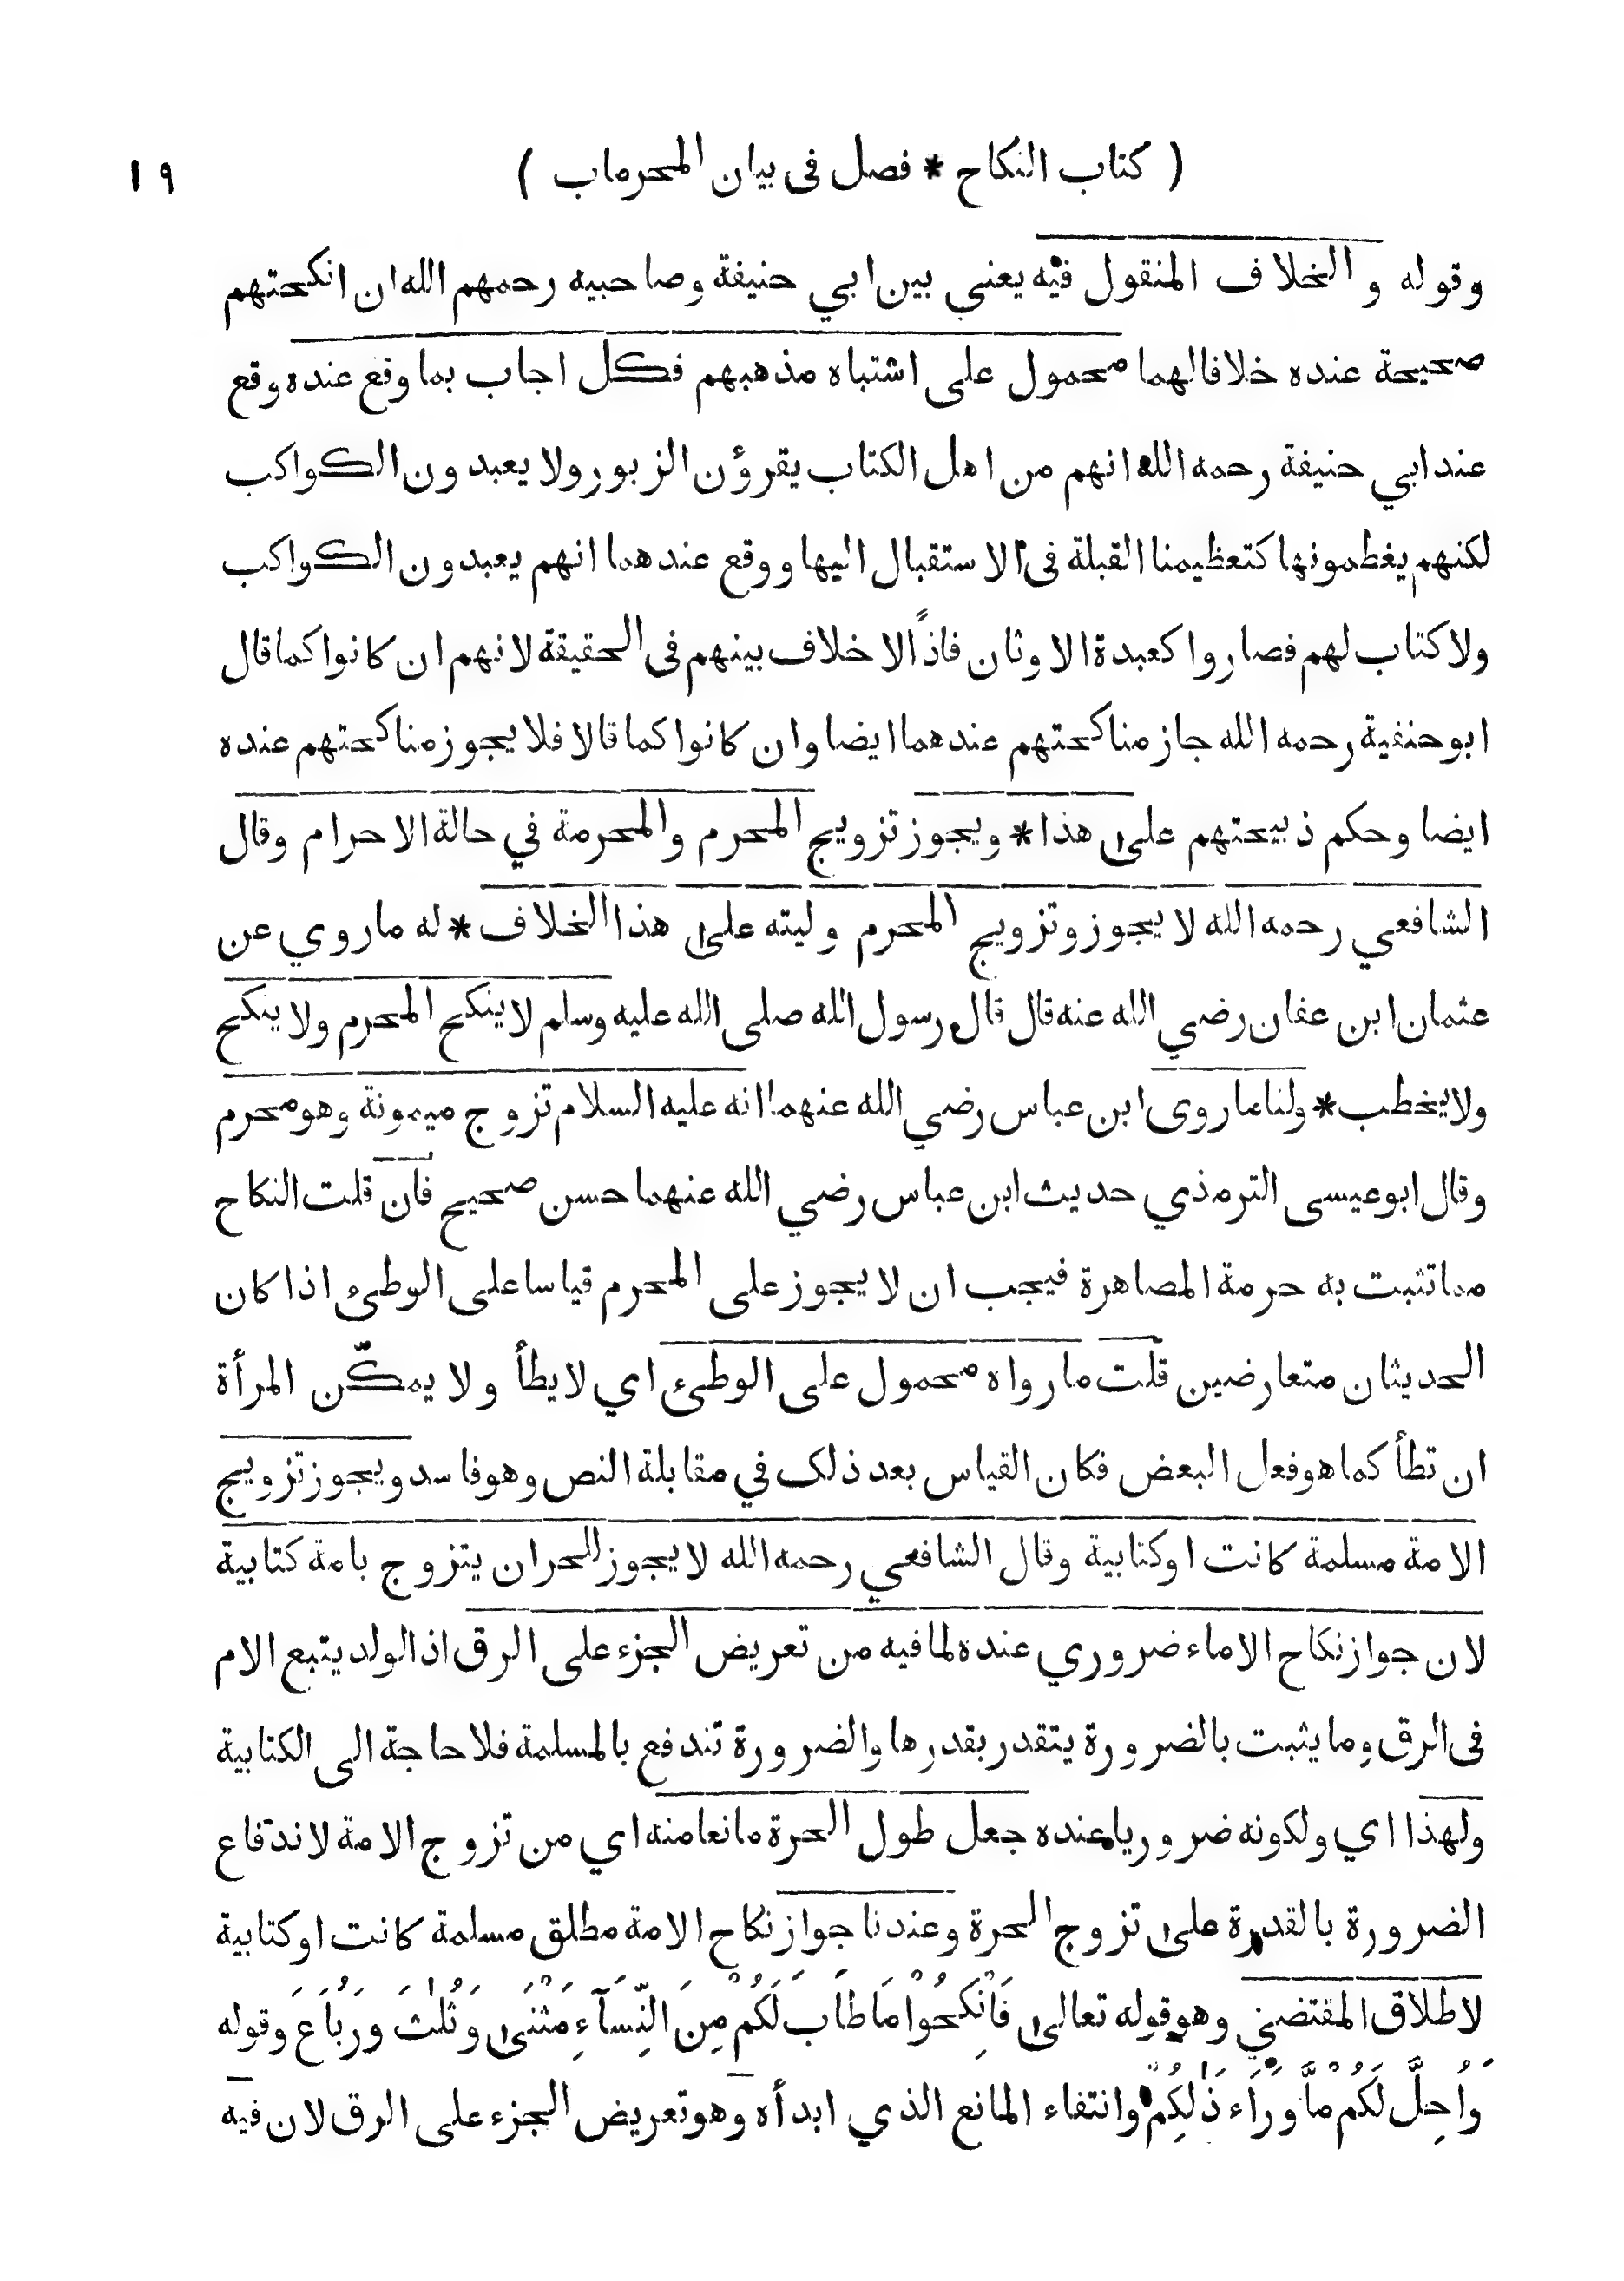 ( كتاب النكاح * فصل فى بيان المحرماب )
١٩
وقوله والخلاف المنقول فيه يعني بين ابي حنيفة وصاحبيه رحمهم الله ان انكحتهم
صحيحة عنده خلافا لهما محمول على اشتباه مذهبهم فكل اجاب بما وقع عنده وقع
عند ابي حنيفة رحمه الله انهم من اهل الكتاب يقرؤن الزبور ولا يعبدون الكواكب
لكنهم يغطمونها كتعظيمنا القبلة فى الاستقبال اليها ووقع عندهما انهم يعبدون الكواكب
ولا كتاب لهم فصاروا كعبدة الاوثان فاذًا لا خلاف بينهم فى الحقيقة لانهم ان كانوا كما قال
ابو حنفية رحمه الله جاز مناكحتهم عندهما ايضا وان كانوا كما قالا فلا يجوز مناكحتهم عنده
ايضا وحكم ذبيحتهم على هذا * ويجوز تزويج المحرم والمحرمة في حالة الاحرام وقال
الشافعي رحمه الله لا يجوز وتزويج المحرم وليته على هذا الخلاف * له ما روي عن
عثمان ابن عفان رضي الله عنه قال قال رسول الله صلى الله عليه وسلم لا ينكح المحرم ولا ينكح
ولا يخطب * ولنا ما روى ابن عباس رضي الله عنهما انه عليه السلام تزوج ميمونة وهو محرم
وقال ابو عيسى الترمذي حديث ابن عباس رضي الله عنهما حسن صحيح فان قلت النكاح
مما تثبت به حرمة المصاهرة فيجب ان لا يجوز على المحرم قياسا على الوطئ اذا كان
الحديثان متعارضين قلت ما رواه محمول على الوطئ اي لا يطأ ولا يمكّن المرأة
ان تطأ كما هو فعل البعض فكان القياس بعد ذلك في مقابلة النص وهو فاسد ويجوز تزويج
الامة مسلمة كانت او كتابية وقال الشافعي رحمه الله لا يجوز للحر ان يتزوج بامة كتابية
لان جواز نكاح الاماء ضروري عنده لما فيه من تعريض الجزء على الرق اذ الولد يتبع الام
فى الرق وما يثبت بالضرورة يتقدر بقدرها والضرورة تندفع بالمسلمة فلا حاجة الى الكتابية
ولهذا اي ولكونه ضروريا عنده جعل طول الحرة مانعا منه اي من تزوج الامة لاندفاع
الضرورة بالقدرة على تزوج الحرة وعندنا جواز نكاح الامة مطلق مسلمة كانت او كتابية
لاطلاق المقتضي وهو قوله تعالى فَانْكِحُوْا مَا طَابَ لَكُمْ مِنَ النِّسَآءِ مَثْنَى وَثُلٰثَ وَرُبَاعَ وقوله
وَاُحِلَّ لَكُمْ مَّا وَرَاء ذٰلِكُمْ وانتفاء المانع الذي ابدأه وهو تعريض الجزء على الرق لان فيه